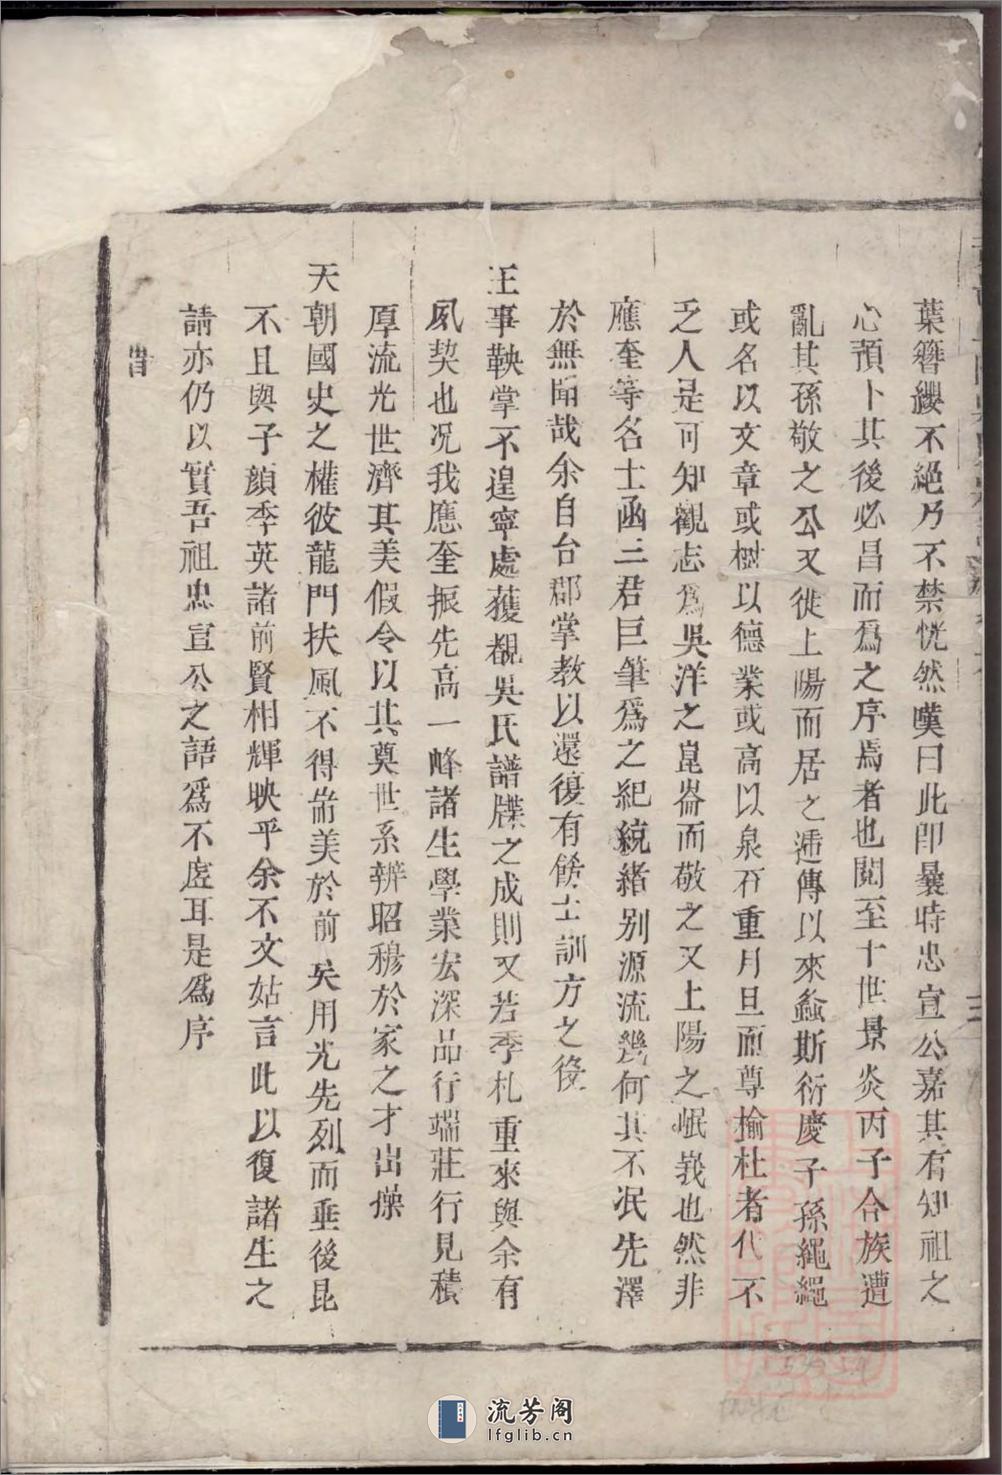 葉簪纓不絕乃不禁恍然嘆曰此即曩時忠宣公嘉其有知祖之
心預卜其後必昌而爲之序焉者也閱至十世景炎丙子合族遭
亂其孫敬之公又徙上陽而居之遞傳以來螽斯衍慶子孫繩繩
或名以文章或樹以德業或高以泉石重月旦而尊揄杜者代不
乏人是可知觀志爲吳洋之崑崙而敬之又上陽之岷峩也然非
應奎等名士函三君巨筆爲之紀統緒别源流幾何其不泯先澤
於無聞哉余自台郡掌教以還復有餘士訓方之役
王事鞅掌不遑寧處獲覩吳氏譜牒之成則又若季札重來與余有
夙契也况我應奎振先高一峰諸生學業宏深品行端莊行見積
厚流光世濟其美假令以其奠世系辨昭穆於家之才出操
天朝國史之權彼龍門扶風不得耑美於前矣用光先烈而垂後昆
不且與子顔季英諸前賢相輝映乎余不文姑言此以復諸生之
請亦仍以實吾祖忠宣公之語爲不虗耳是爲序
旹
流芳阁
lfglib.cn